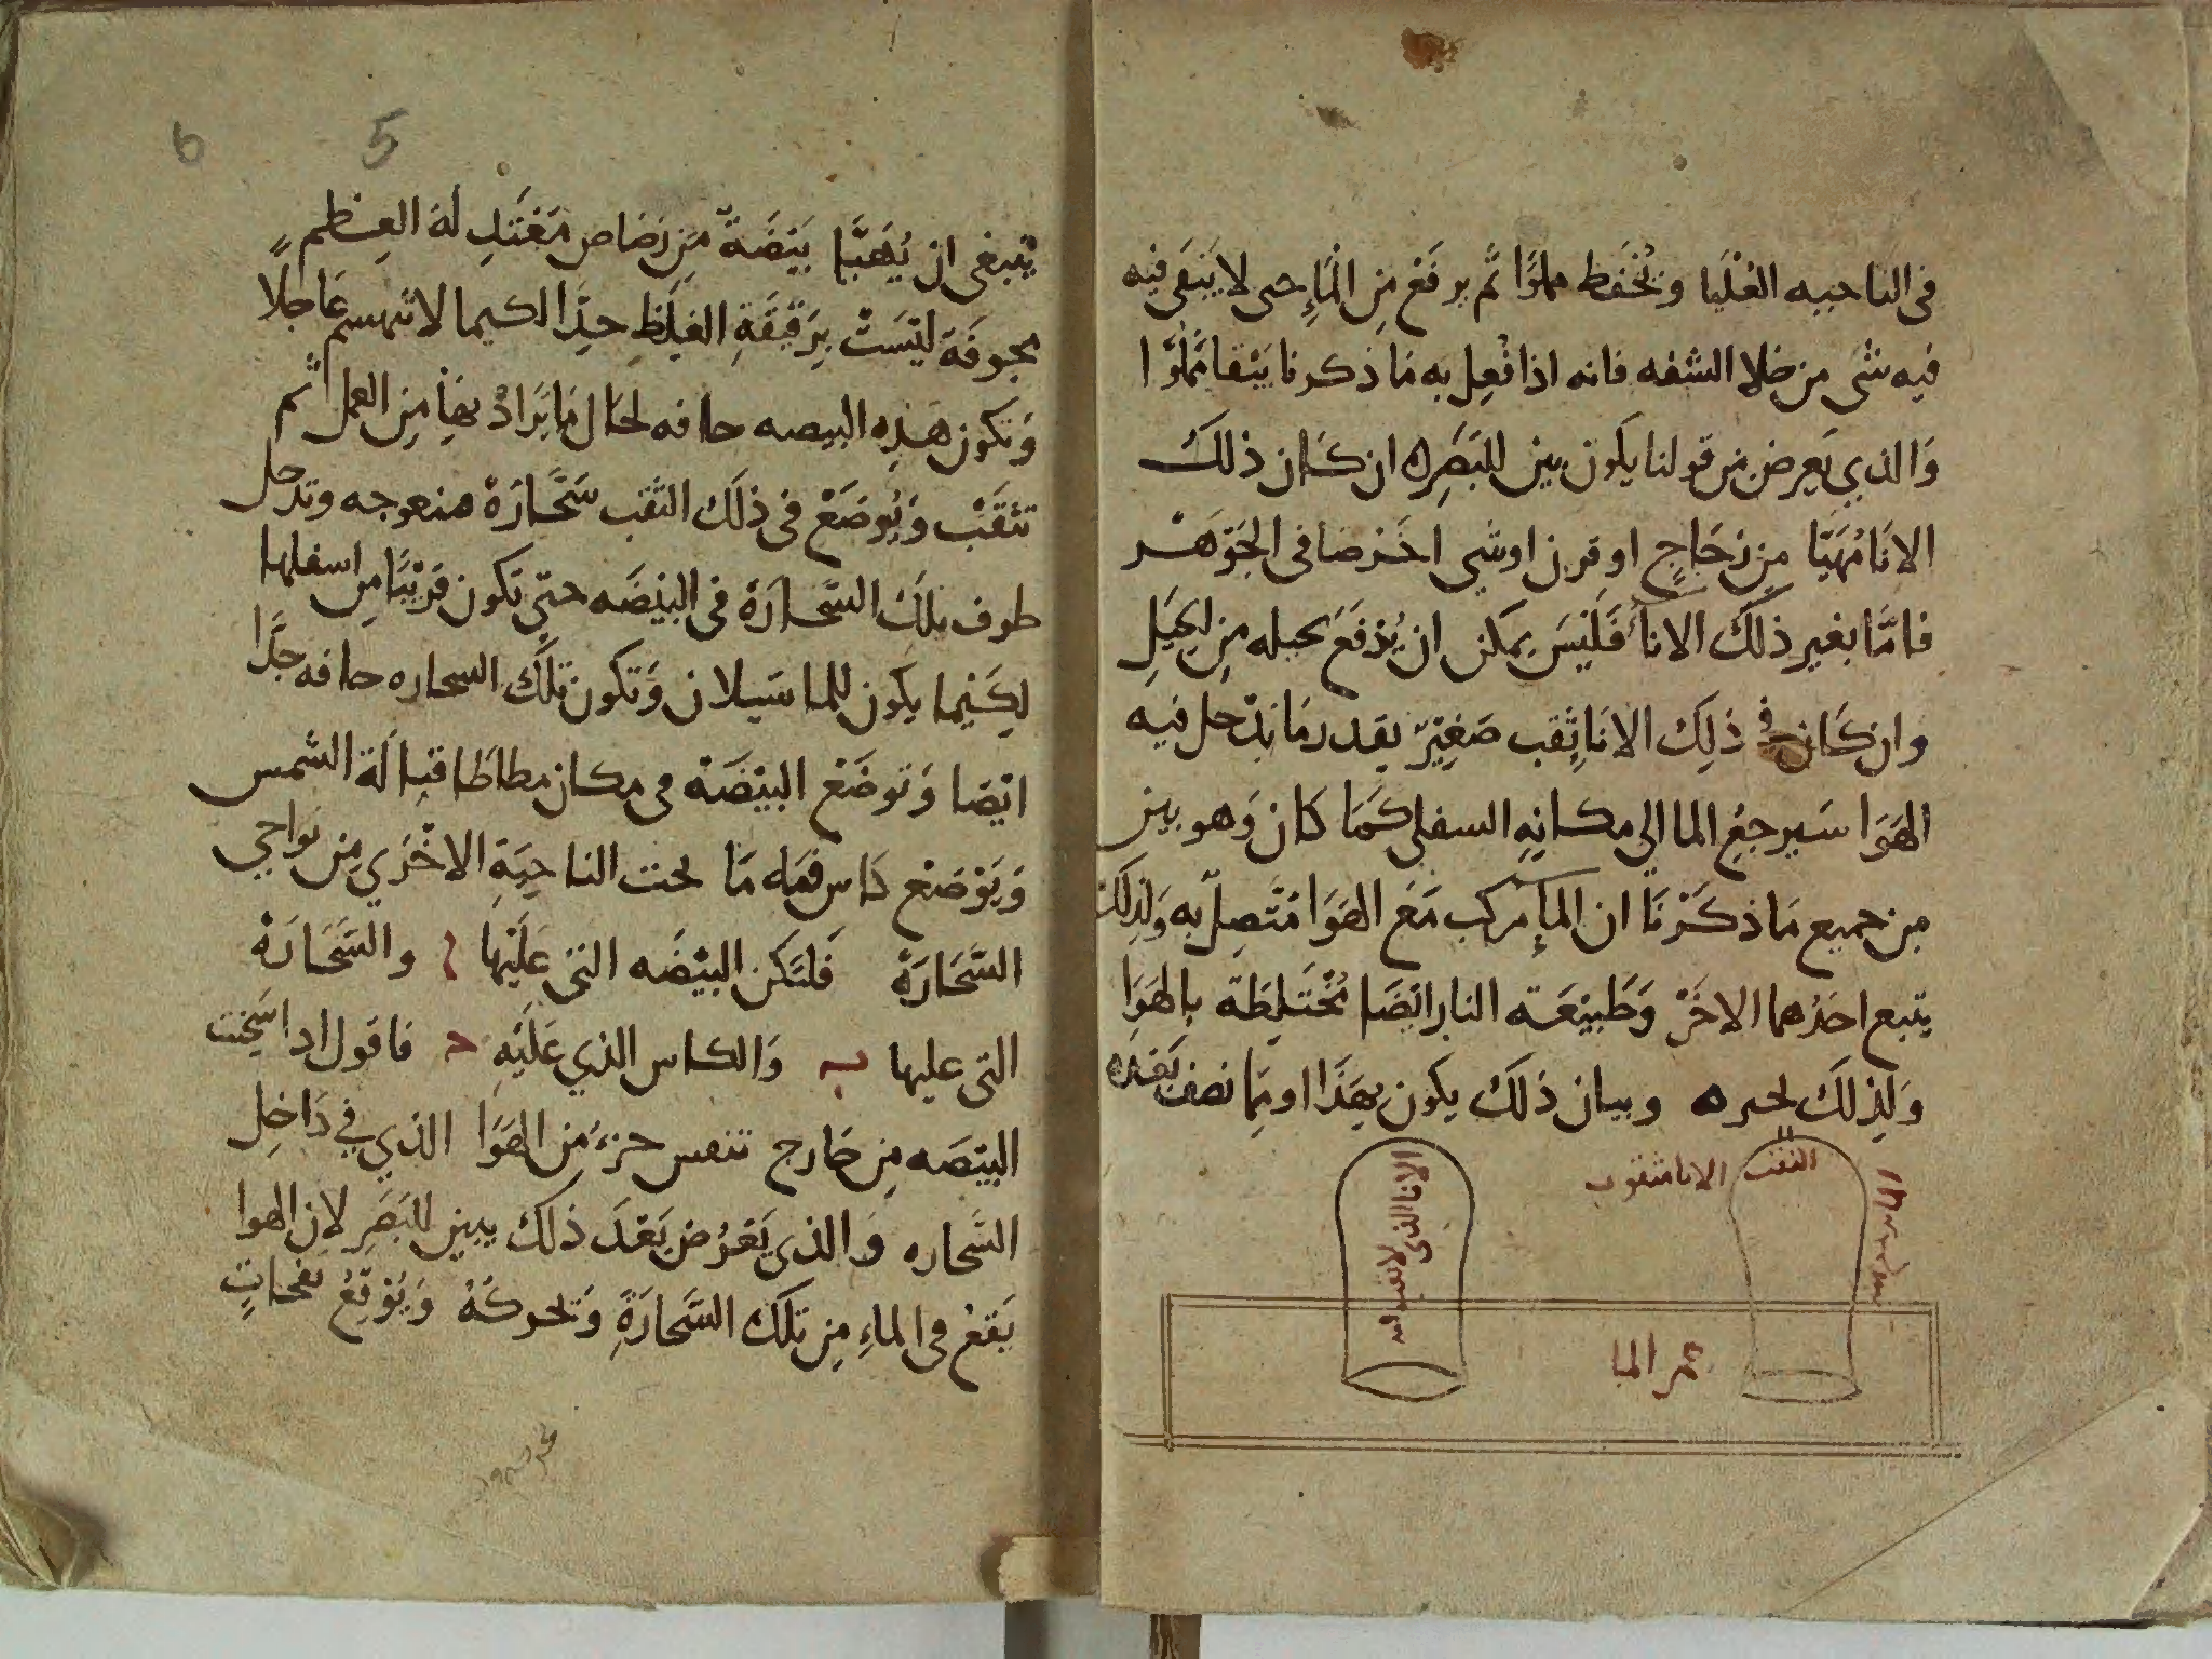 في الناحيه العُلْيا وتُحْفَظ مملوًا ثم يرفَع مِن الْمَاءِ حتى لا يَبْقَى فيه
فيه شي من خلا الشفه فانه اذا فُعِل به مَا ذكرنا يَبْقا مملوًا
وَالذي يَعرض من قولنا يكون بين للبَصَرِ ان كان ذلك
الانا مُهَيّا مِن زجَاجٍ او قرن او شي اخر صافي الجَوْهَر
فامَّا بغير ذلك الانا فَلَيْسَ يمكن ان يُرْفَعَ بحيله مِن الحِيَلِ
وان كَان في ذلِك الانا ثقب صَغِيرٌ بقدر مَا يدْخل فيه
الهَوَا سَيرجعِ الما الي مكانِهِ السفلي كَمَا كَان وَهو بين
مِن جميع مَا ذكَرْنَا ان الماء مركب مَعَ الهَوَا مُتَّصِلٌ به وَلِذلك
يتبع احَدُهما الاخَرْ وَطَبيْعَته النار ايْضَا مُخْتَلِطَة بالهَوَا
وَلِذلكَ تجره وبيان ذلكَ يكون بهَذَا او بمَا نصف بَعْدَه
الثقب
الانا مثقوب
الانا الذي لا ثقب فيه
الما
يَنبغى ان يُهَيَّا بَيْضَةٌ مِن رصَاص مُعْتَدِلِة العِظم
مجوفَة ليْسَتْ بِرَقيْقَةِ الغِلَظِ جدَّا لكيما لا تنهشم عَاجلًا
وَتكون هَذِه البيضه جافه لحَال مَا يُرَادُ بهَا مِن العمل ثم
تثقَبْ وَيُوضَعْ في ذلَك الثقب سَحَّارَةْ منعوجه وتدخل
طرف تلكَ السَّحارَةْ في البيْضَه حتّى تكون قَرْيبًا مِن اسفلها
لِكَيْما يكُون للما سَيلان وَتكون تلكَ السحاره جافه جدًّا
ايْضا وَتوضَعْ البيْضَهْ في مكان مطاطَا قبالَة الشمس
وَيَوْضَعْ كاس فيه مَا تحت الناحيَةِ الاخْرَي مِن نواحي
السّحَارَةْ فَلتَكن البيْضَه التي عَلَيْها ا والسّحَارَةْ
التي عليها ب وَالكاس الذي عَلَيْهِ ح فاقول اذا سَخِنت
البيْضَه مِن خارج تنفس جزءُ مِن الهَوَا الذي في دَاخِل
السّحاره وَالذي يَعْرُض بَعْدَ ذلك يبين للبَصَرِ لان الهوا
يَقعْ في الماءِ مِن تلك السَّحارَةِ وَتحركهُ وَيُوقِعْ نفخاتٍ
5
6